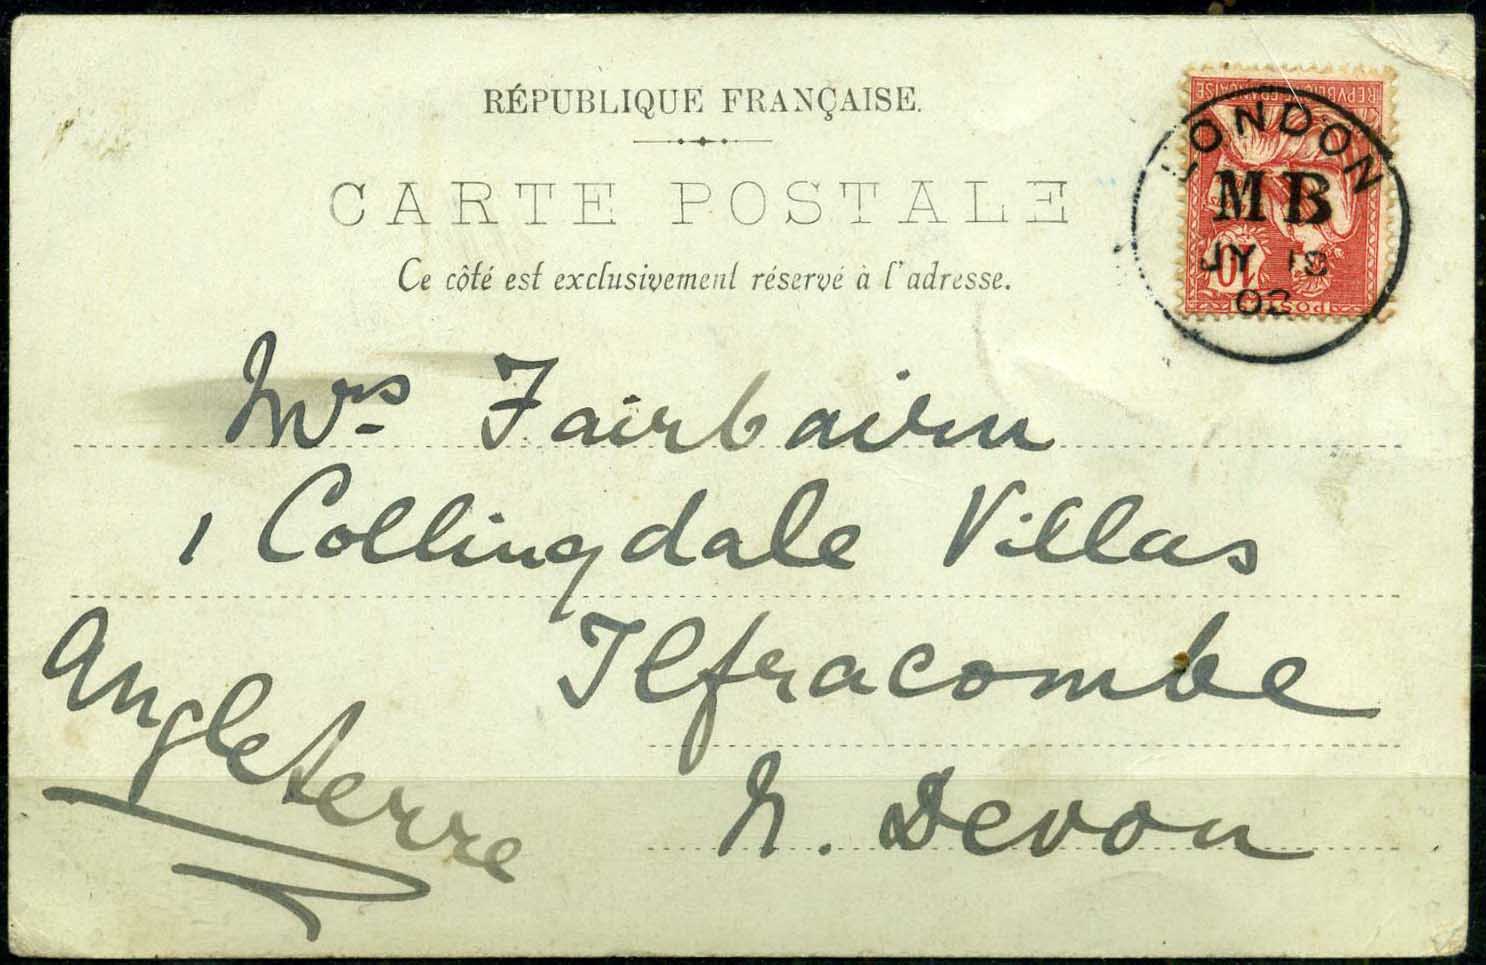 RÉPUBLIQUE FRANÇAISE.
CARTE POSTALE
Ce côté est exclusivement réservé à l'adresse.
REPVBLIQUE FRANÇAISE
10
POSTES
LONDON
MB
JY 18
02
Mrs Fairbairn
1 Collingdale Villas
Ilfracombe
N. Devon
Angleterre